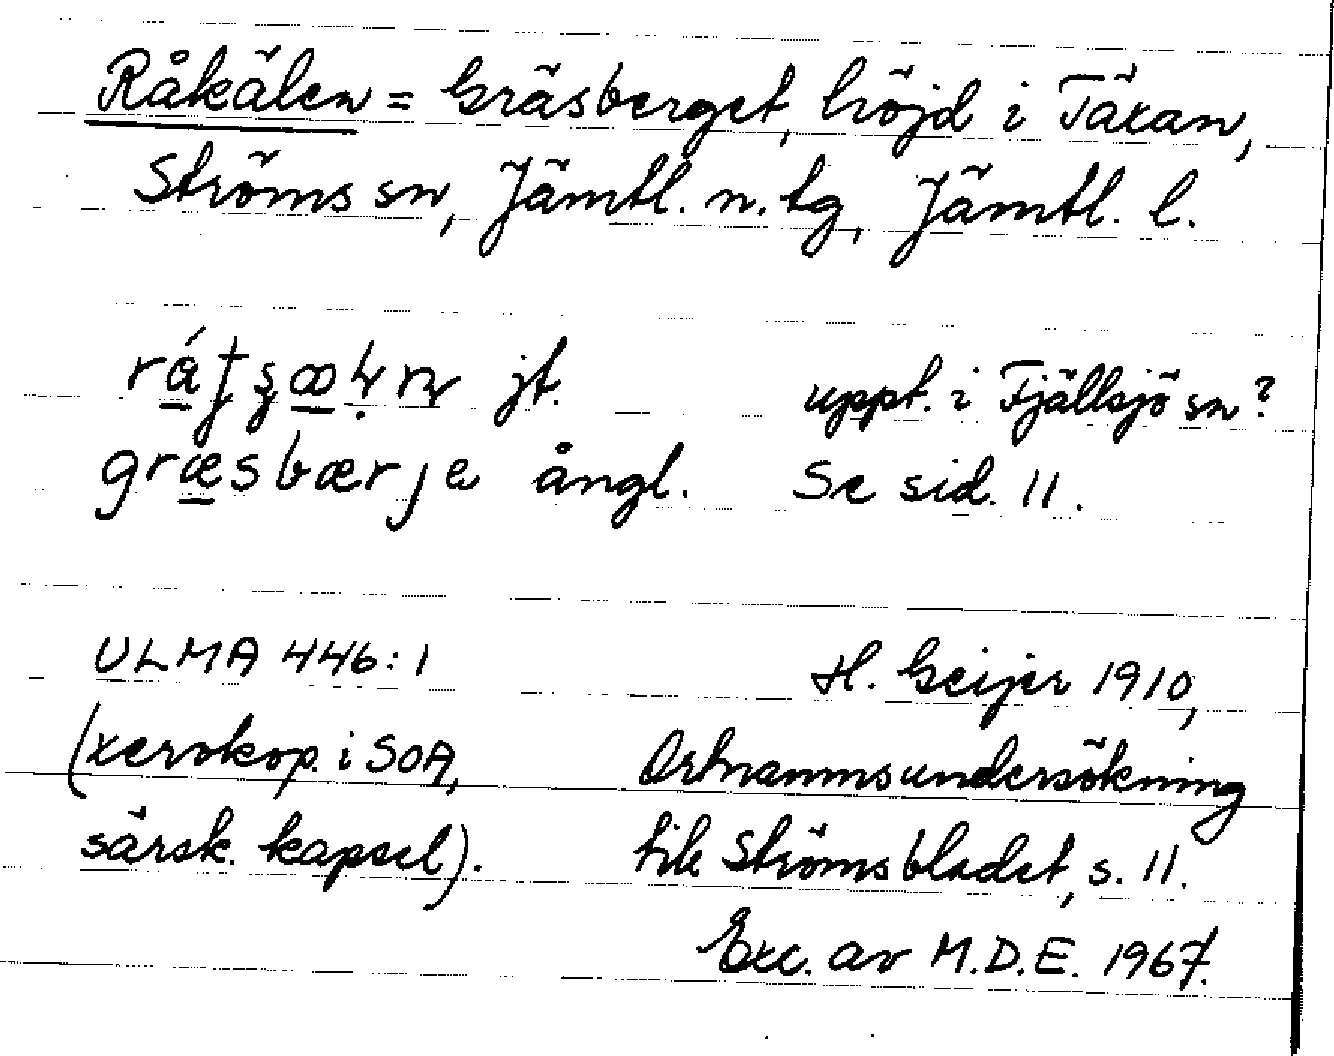 Råkälen = Gräsberget, höjd i Täxan,
Ströms sn, Jämtl. n. tg, Jämtl. l.
jt. uppt. i Fjällsjö sn?
græsbærje ångl. Se sid. 11.
ULMA 446:1 H. Geijer 1910,
(xerokop. i SOA, Ortnamnsundersökning
särsk. kapsel). till Strömsbladet, s. 11.
Exc. av M.D.E. 1967.